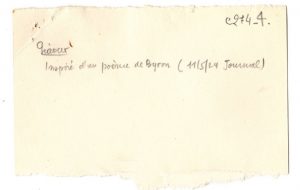 c274-4.
Giaour
Inspiré d'un poème de Byron (11/5/24 Journal)